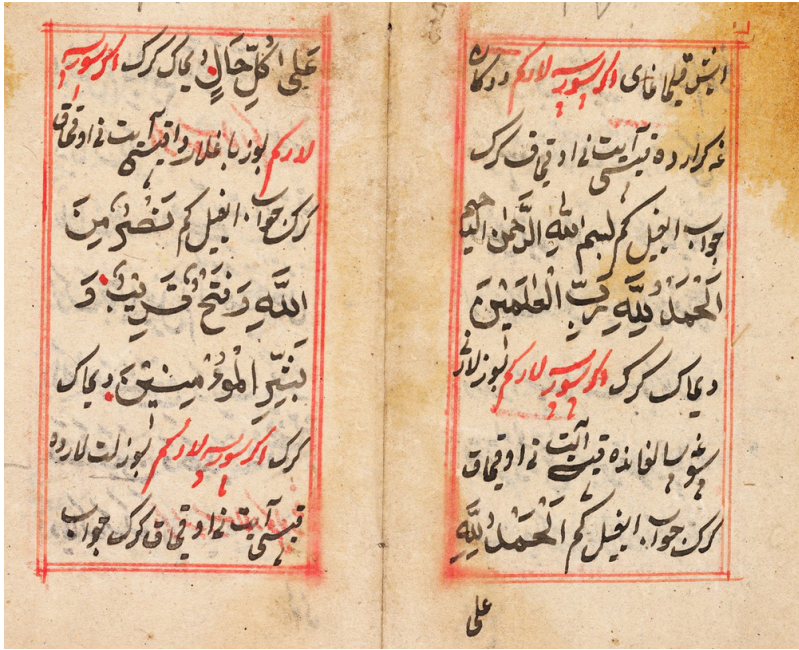 ایش قیلماغای اگر سورسه لار کم دوکاه
غه کرارده قیسی آیت نی اوقیماق کرک
جواب ایغیل کم بسم اللّٰهِ الرَّحمٰن الرحیم
اَلْحَمْدُ لِلّٰهِ رَبِّ الْعٰلَمِیْنَ
دیماک کرک اگر سورسه لار کم بوزلارنی
قیسی آیت نی اوقیماق
کرک جواب ایغیل کم اَلْحَمْدُ لِلّٰهِ
علی
عَلٰی کُلِّ حَالٍ دیماک کرک اگر سورسه
لار کم بوز باغلارده قیسی آیت نی اوقماق
کرک جواب ایغیل کم نَصْرٌ مِنَ
اللّٰهِ وَفَتْحٌ قَرِیْبٌ وَ
بَشِّرِ الْمُؤْمِنِیْنَ دیماک
کرک اگر سورسه لار کم بوز لت لارده
قیسی آیت نی اوقیماق کرک جواب